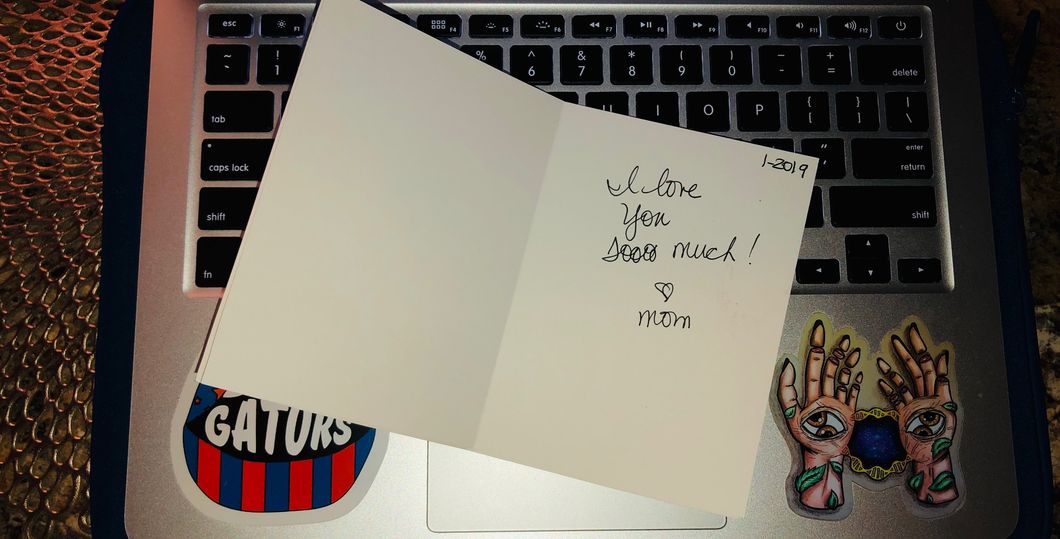 esc F1 F4 F5 F6 F7 F8 F9 F10 F11 F12
~ ` ! 1 % ^ 6 & 7 * 8 ( 9 ) 0 - + = delete
tab U I O P { [ } ] | \
caps lock " ' enter return
shift shift
fn
1-2019
I love
You
Soooo much!
♡
mom
GATORS